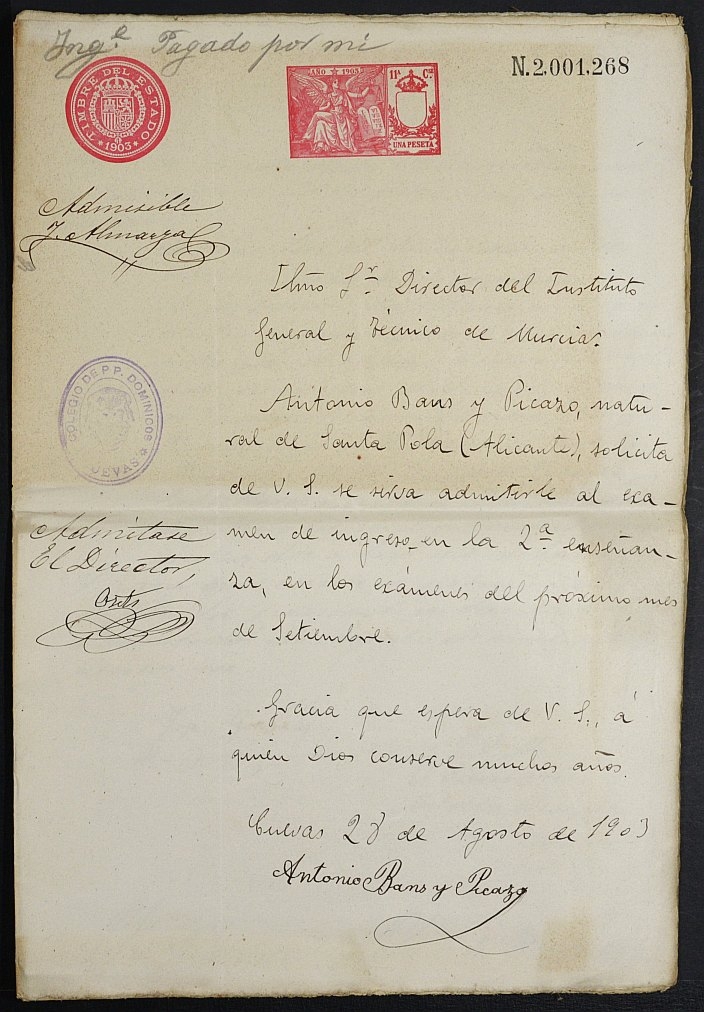 Ing.º Pagado por mi
TIMBRE DEL ESTADO
* 1903 *
AÑO ☆ 1903
11ª Cº
UNA PESETA
N.2.001.268
Admisible
J. Almazza
Ilmo Sr Director del Instituto
General y Técnico de Murcia.
Antonio Bans y Picazo, natu-
ral de Santa Pola (Alicante), solicita
de V. S. se sirva admitirle al exa-
men de ingreso en la 2ª enseñan-
za, en los exámenes del próximo mes
de Setiembre.
COLEGIO DE P.P. DOMINICOS
CUEVAS
Admítase
El Director,
Gracia que espera de V. S., á
quien Dios conserve muchos años.
Cuevas 28 de Agosto de 1903
Antonio Bans y Picazo